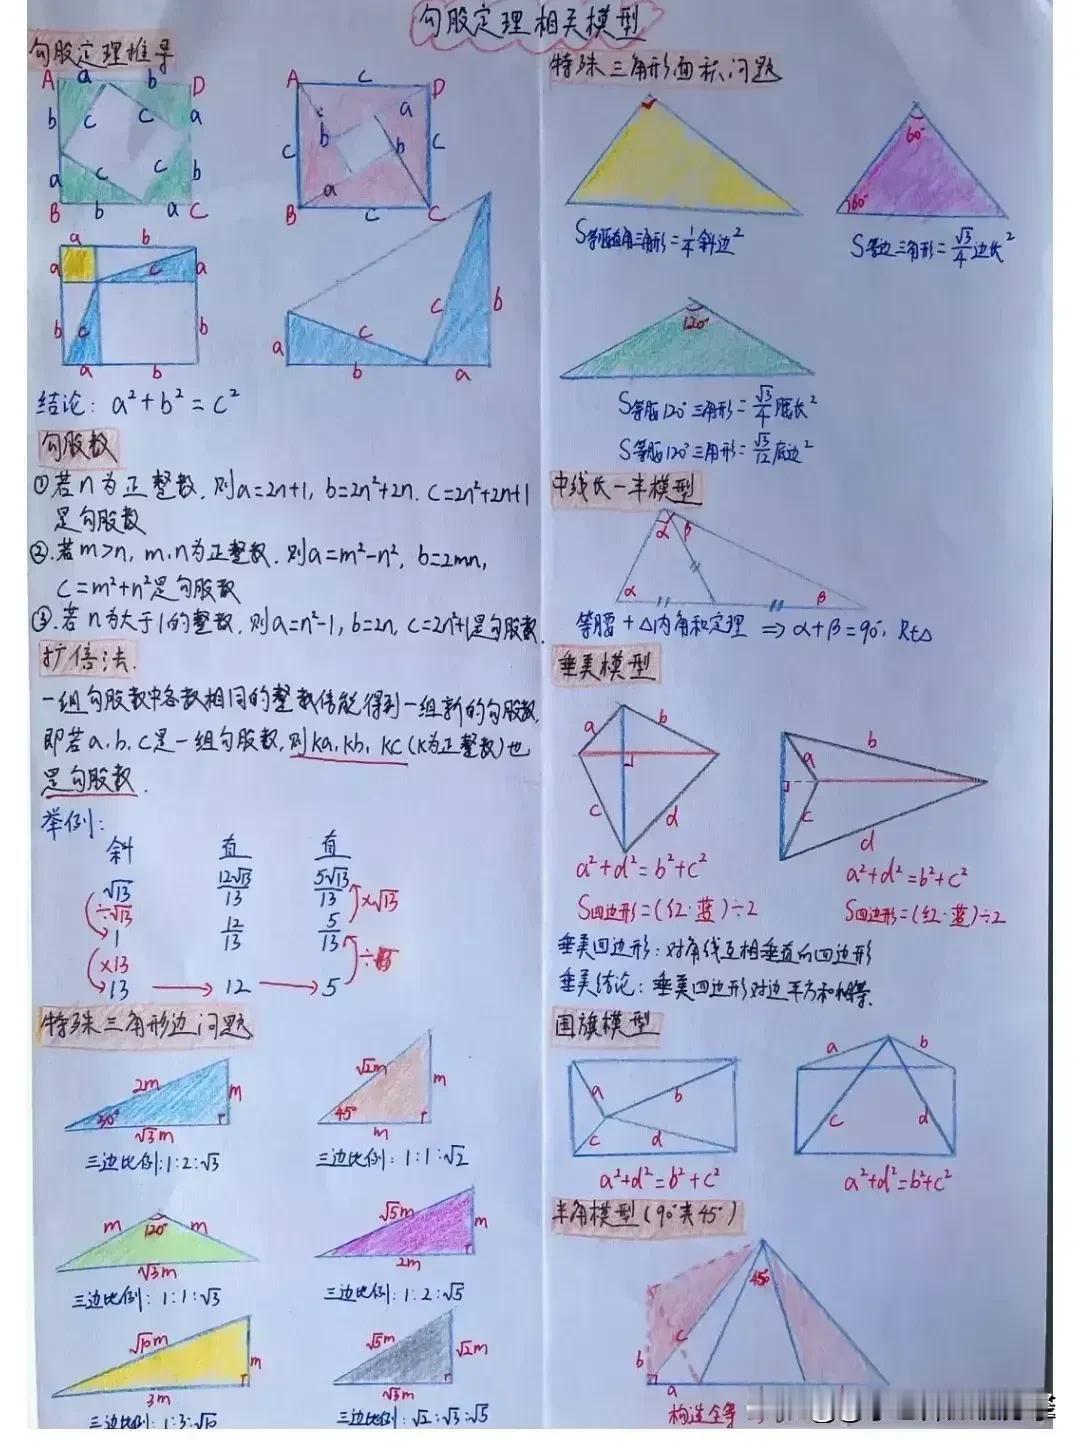 勾股定理相关模型
勾股定理推导
A a b D
b c c a
a c c b
B b a C
A c D
c a
c b b c
a
B c C
a b
a c a
b c b
a b
a c c b
b a
结论：a²+b²=c²
勾股数
①若n为正整数，则a=2n+1，b=2n²+2n，c=2n²+2n+1
是勾股数
②.若m>n，m、n为正整数，则a=m²-n²，b=2mn，
c=m²+n²是勾股数
③.若n为大于1的整数，则a=n²-1，b=2n，c=2n²+1是勾股数.
扩倍法.
一组勾股数中各数相同的整数倍能得到一组新的勾股数，
即若a、b、c是一组勾股数，则ka、kb、kc(k为正整数)也
是勾股数.
举例：
斜 直 直
√13 12√13/13 5√13/13 ×√13
÷√13
1 12/13 5/13
×13 ÷
13 → 12 → 5
特殊三角形边问题
2m m 30° √3m
三边比例：1:2:√3
√2m m 45° m
三边比例：1:1:√2
m 120° m √3m
三边比例：1:1:√3
√5m m 2m
三边比例：1:2:√5
√10m m 3m
三边比例：1:3:√10
√5m √2m √3m
三边比例：√2:√3:√5
特殊三角形面积问题
S等腰直角三角形=1/4斜边²
60° 60°
S等边三角形=√3/4边长²
120°
S等腰120°三角形=√3/4腰长²
S等腰120°三角形=√3/12底边²
中线长一半模型
α β
α β
等腰+△内角和定理⇒α+β=90°，Rt△
垂美模型
a b
c d
a²+d²=b²+c²
S四边形=(红·蓝)÷2
b
a
c
d
a²+d²=b²+c²
S四边形=(红·蓝)÷2
垂美四边形：对角线互相垂直的四边形
垂美结论：垂美四边形对边平方和相等.
国旗模型
a b
c d
a²+d²=b²+c²
a b
c d
a²+d²=b²+c²
半角模型(90°夹45°)
45°
c
b
a
构造全等